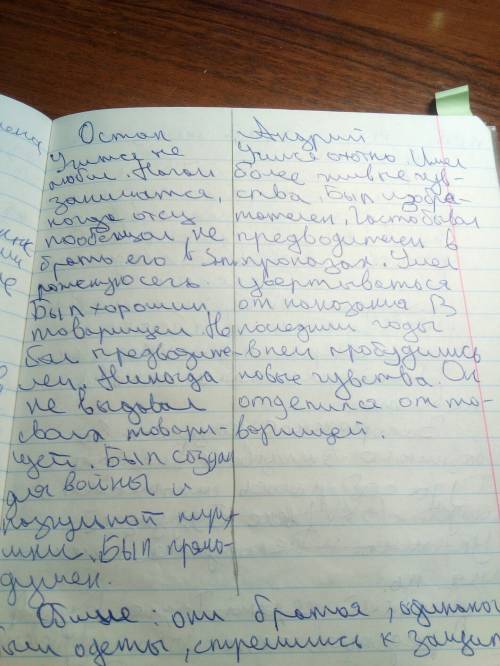 Остап
Учится не
любил. Начал
заниматся,
когда отец
пообещал не
брать его в За-
рожскую сечь.
Был хорошим
товарищем. Но
был предводите-
лем. Никогда
не выдавал
своих товари-
щей. Был создан
для войны и
разгульной пиру-
шки. Был прямо-
душен.
Андрий
Учился охотно. Имел
более живые чув-
ства. Был изобре-
тателен. Часто бывал
предводителем в
проказах. Умел
увертываться
от наказания. В
последнии годы
в нем пробудились
новые чувства. Он
отделился от то-
варищей.
Общие: они братья, одинаково
были одеты, стремились к защит